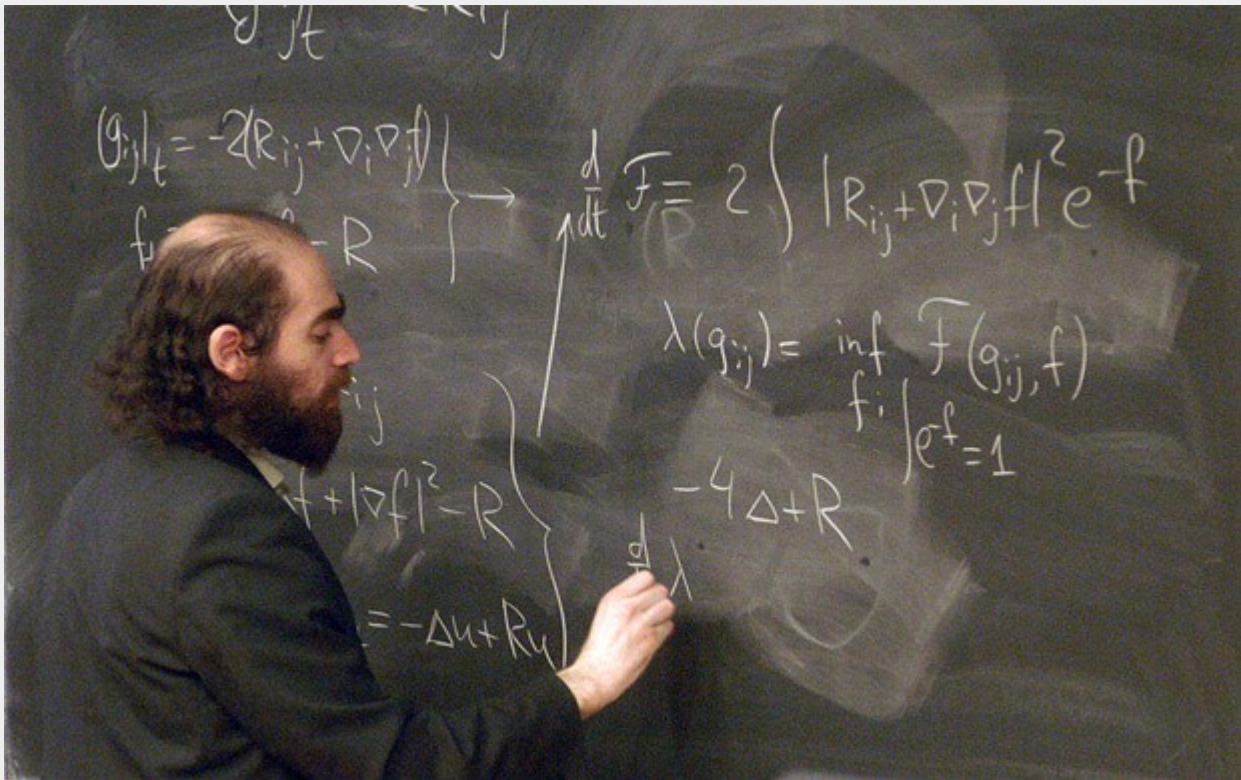 (g_{ij})_t = -2(R_{ij} + ∇_i∇_j f) } → d/dt F = 2 ∫ |R_{ij} + ∇_i∇_j f|² e^{-f}
- R
λ(g_{ij}) = inf F(g_{ij}, f)
f: ∫e^{-f} = 1
ij
f + |∇f|² - R
-4Δ+R
d λ
= -Δu + Ru